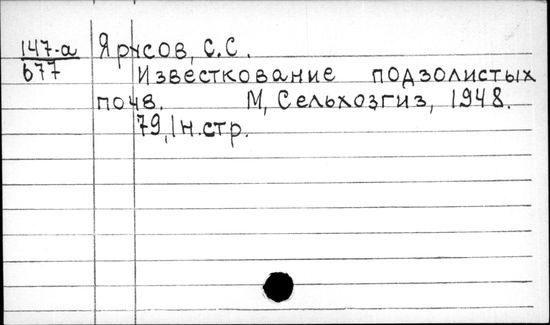 147-а Ярусов, С.С.
677
Известкование подзолистых
почв. М, Сельхозгиз, 1948.
79, 1 н.стр.